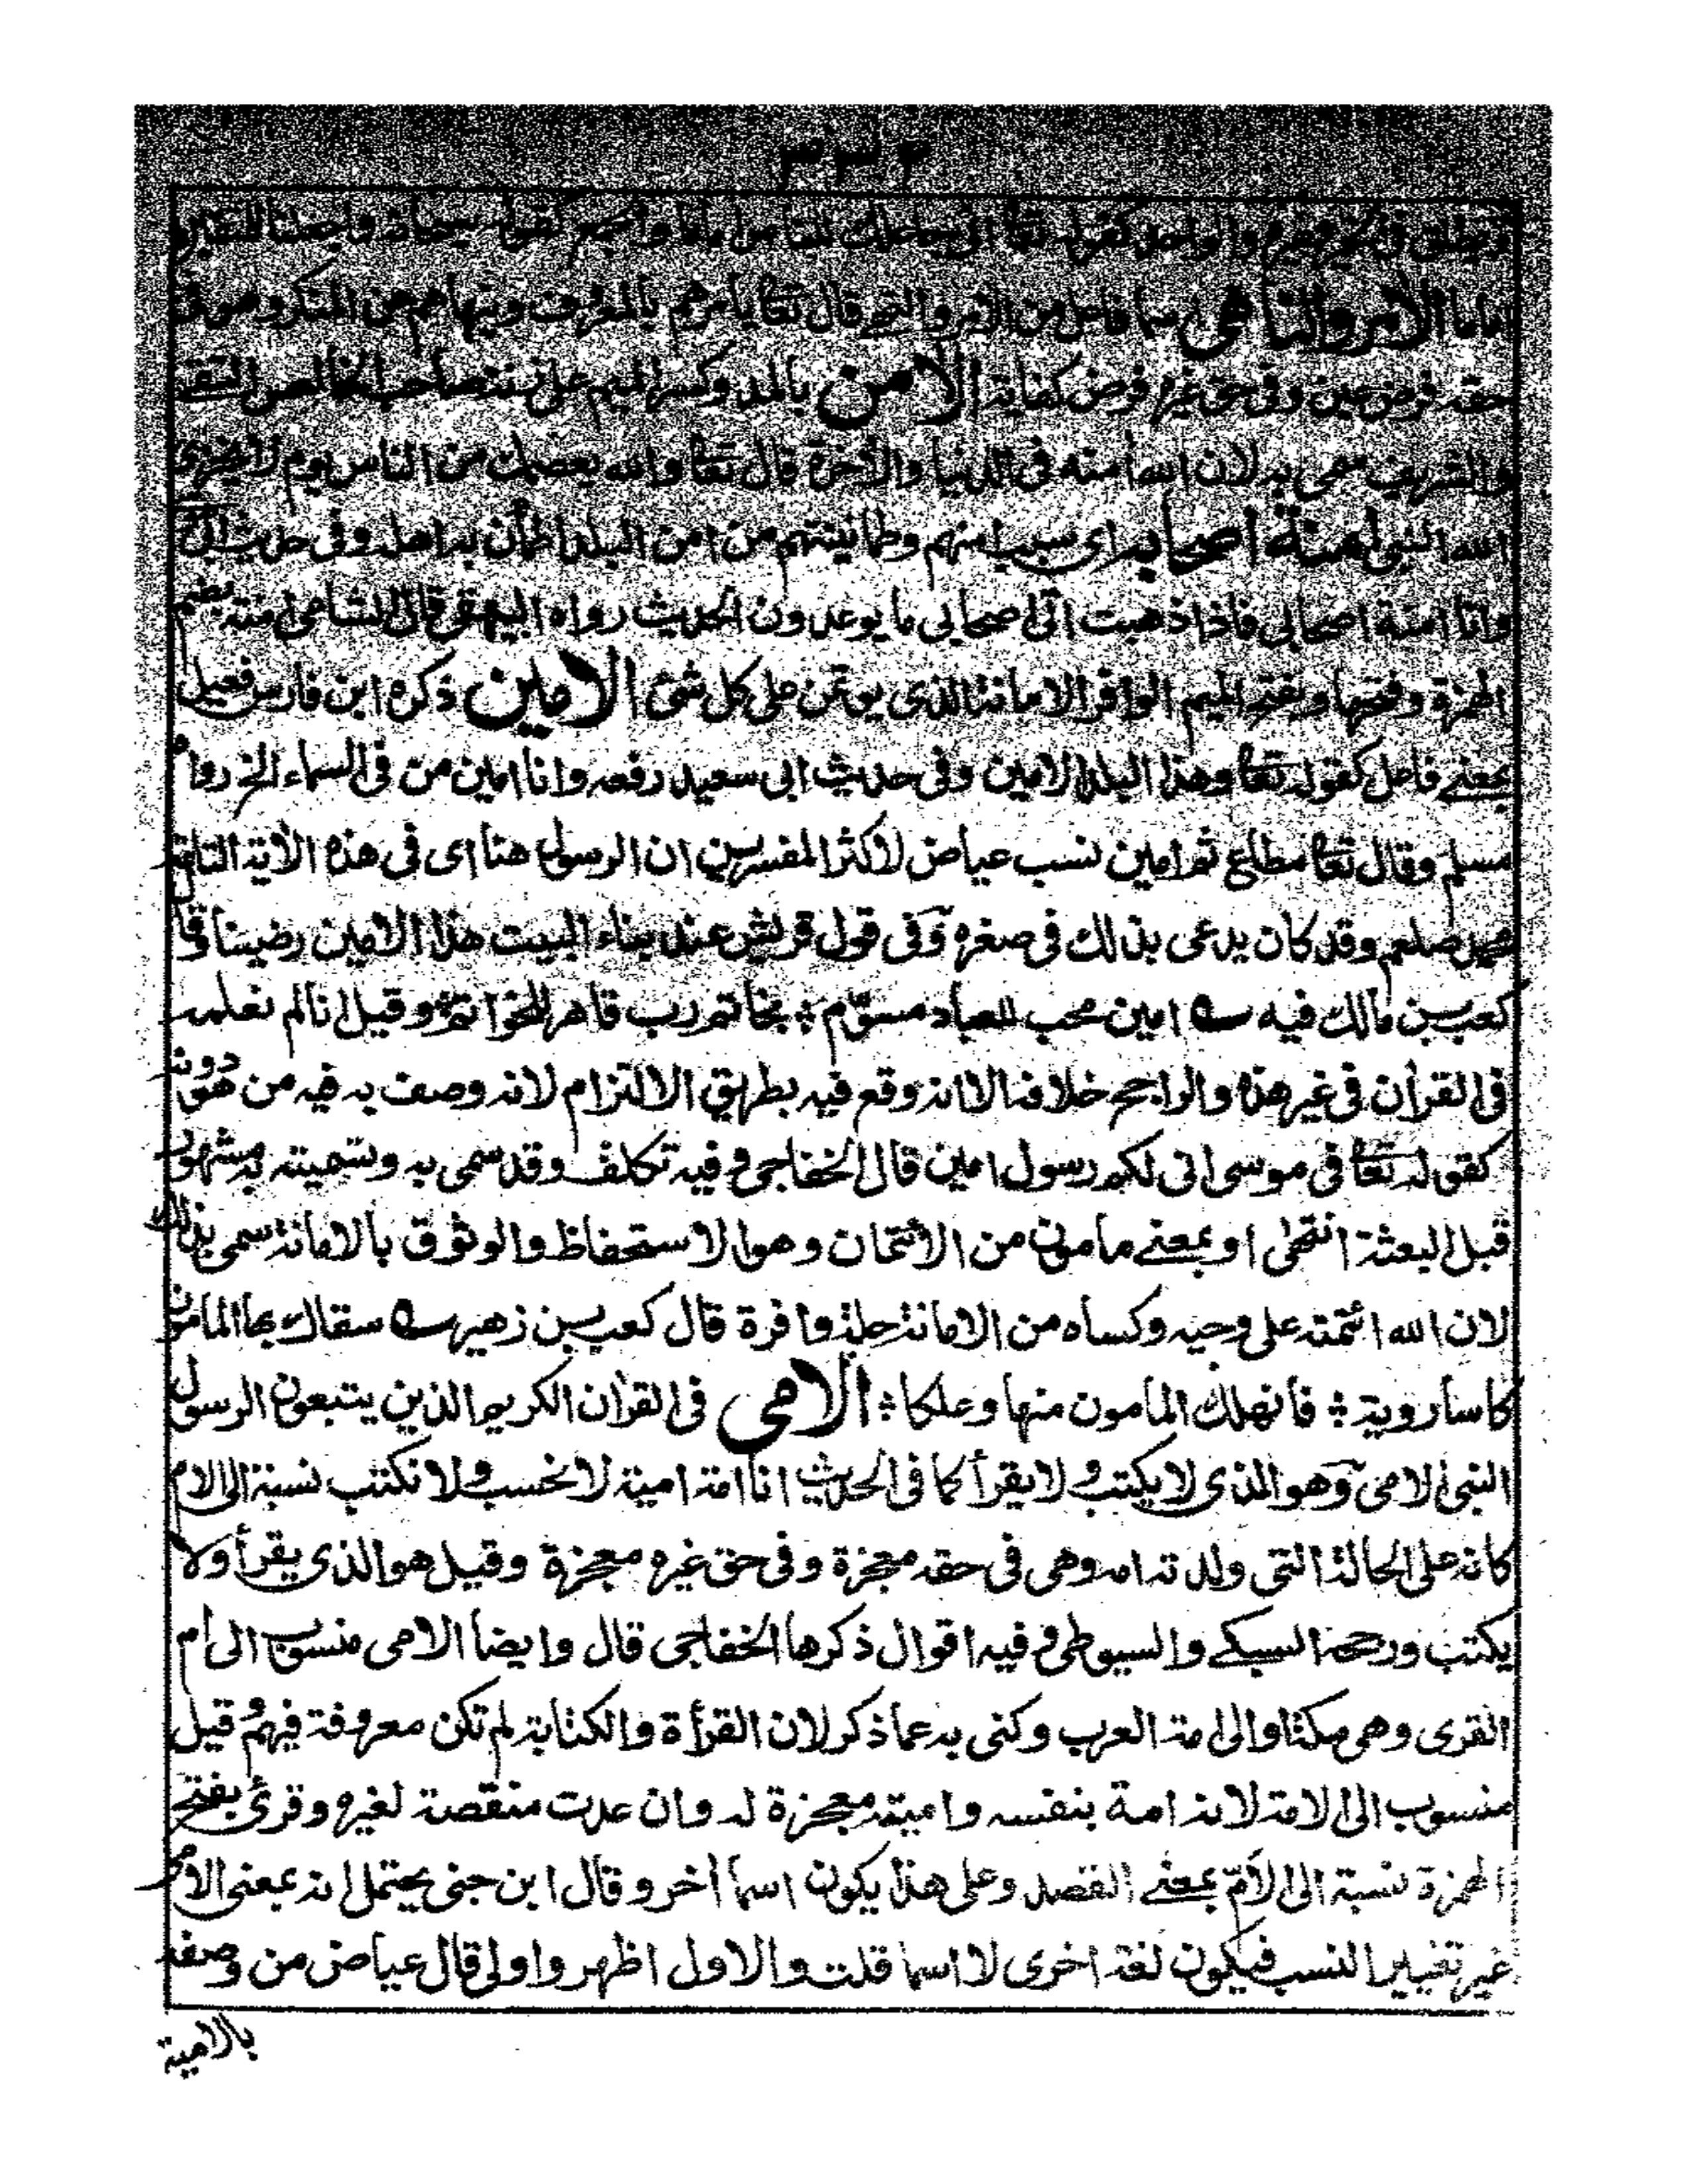 ويطلق في الخير وغيره والواحد كقوله تعا اني جاعلك للناس اماما والجمع كقوله سبحانه واجعلنا للمتقين
اماما الامر والناهي اسما فاعل من الامر والنهي قال تعا يأمرهم بالمعروف وينهاهم عن المنكر وهو في
حقه فرض عين وفي حق غيره فرض كفاية الآمن بالمد وكسر الميم على صاحب الخالص التقي
والشريف سمي به لان الله أمنه في الدنيا والآخرة قال تعا والله يعصمك من الناس يوم لا يخزي
الله النبي امنة اصحابه اي سبب امنهم وطمانينتهم من امن البلد اطمأن به اهله وفي حديث
وانا امنة اصحابي فاذا ذهبت اتى اصحابي ما يوعدون الحديث رواه البيهقي قال الشامي امنة بضم
الهمزة وفتحها وبفتح الميم الوافر الامانة الذي يوتمن على كل شئ الامين ذكره ابن فارس فعيل
بمعنے فاعل كقوله تعا وهذا البلد الامين وفي حديث ابي سعيد رفعه وانا امين من في السماء الخ رواه
مسلم وقال تعا مطاع ثم امين نسب عياض لاكثر المفسرين ان الرسول هنا اي في هذه الآية الثانية
محمد صلعم وقد كان يدعى بذالك في صغره وفي قول قريش عند بناء البيت هذا الامين رضينا قال
كعب بن مالك فيه ؎ امين محب للعباد مسوّم ؞ بخاتم رب قاهر للخواتم ؞ وقيل انا لم نعلمه
في القرآن في غير هذا والراجح خلافه الا انه وقع فيه بطريق الالتزام لانه وصف به فيه من هو دونه
كقوله تعا في موسى اني لكم رسول امين قال الخفاجي وفيه تكلف وقد سمي به وتسميته به مشهور
قبل البعثة انتهى او بمعنے مامون من الأئتمان وهو الاستحفاظ والوثوق بالامانة سمي بذلك
لان الله ائتمنه على وحيه وكساه من الامانة حلة وافرة قال كعب بن زهير ؎ سقاك بها المامون
كاسا روية ؞ فأنهلك المأمون منها وعلكا ؞ الامي في القرآن الكريم الذين يتبعون الرسول
النبي الامي وهو الذي لا يكتب ولا يقرأ كما في الحديث انا امة امية لا نحسب ولا نكتب نسبة الى الام
كانه على الحالة التي ولد ته امه وهي في حقه معجزة وفي حق غيره معجزة وقيل هو الذي يقرأ ولا
يكتب ورجحه السبكے والسيوطي وفيه اقوال ذكرها الخفاجي قال وايضا الامي منسوب الى أم
القرى وهي مكة او الى امة العرب وكنى به عما ذكر لان القرأة والكتابة لم تكن معروفة فيهم وقيل
منسوب الى الامة لانه امة بنفسه واميته معجزة له وان عدت منقصة لغيره وقرئ بفتح
الهمزة نسبة الى الأمّ بمعنے القصد وعلى هذا يكون اسما أخر وقال ابن جني يحتمل انه بمعنى الامي
غير تغيير النسب فيكون لغة اخرى لا اسما قلت والاول اظهر واولى قال عياض من وصفه
بالامية